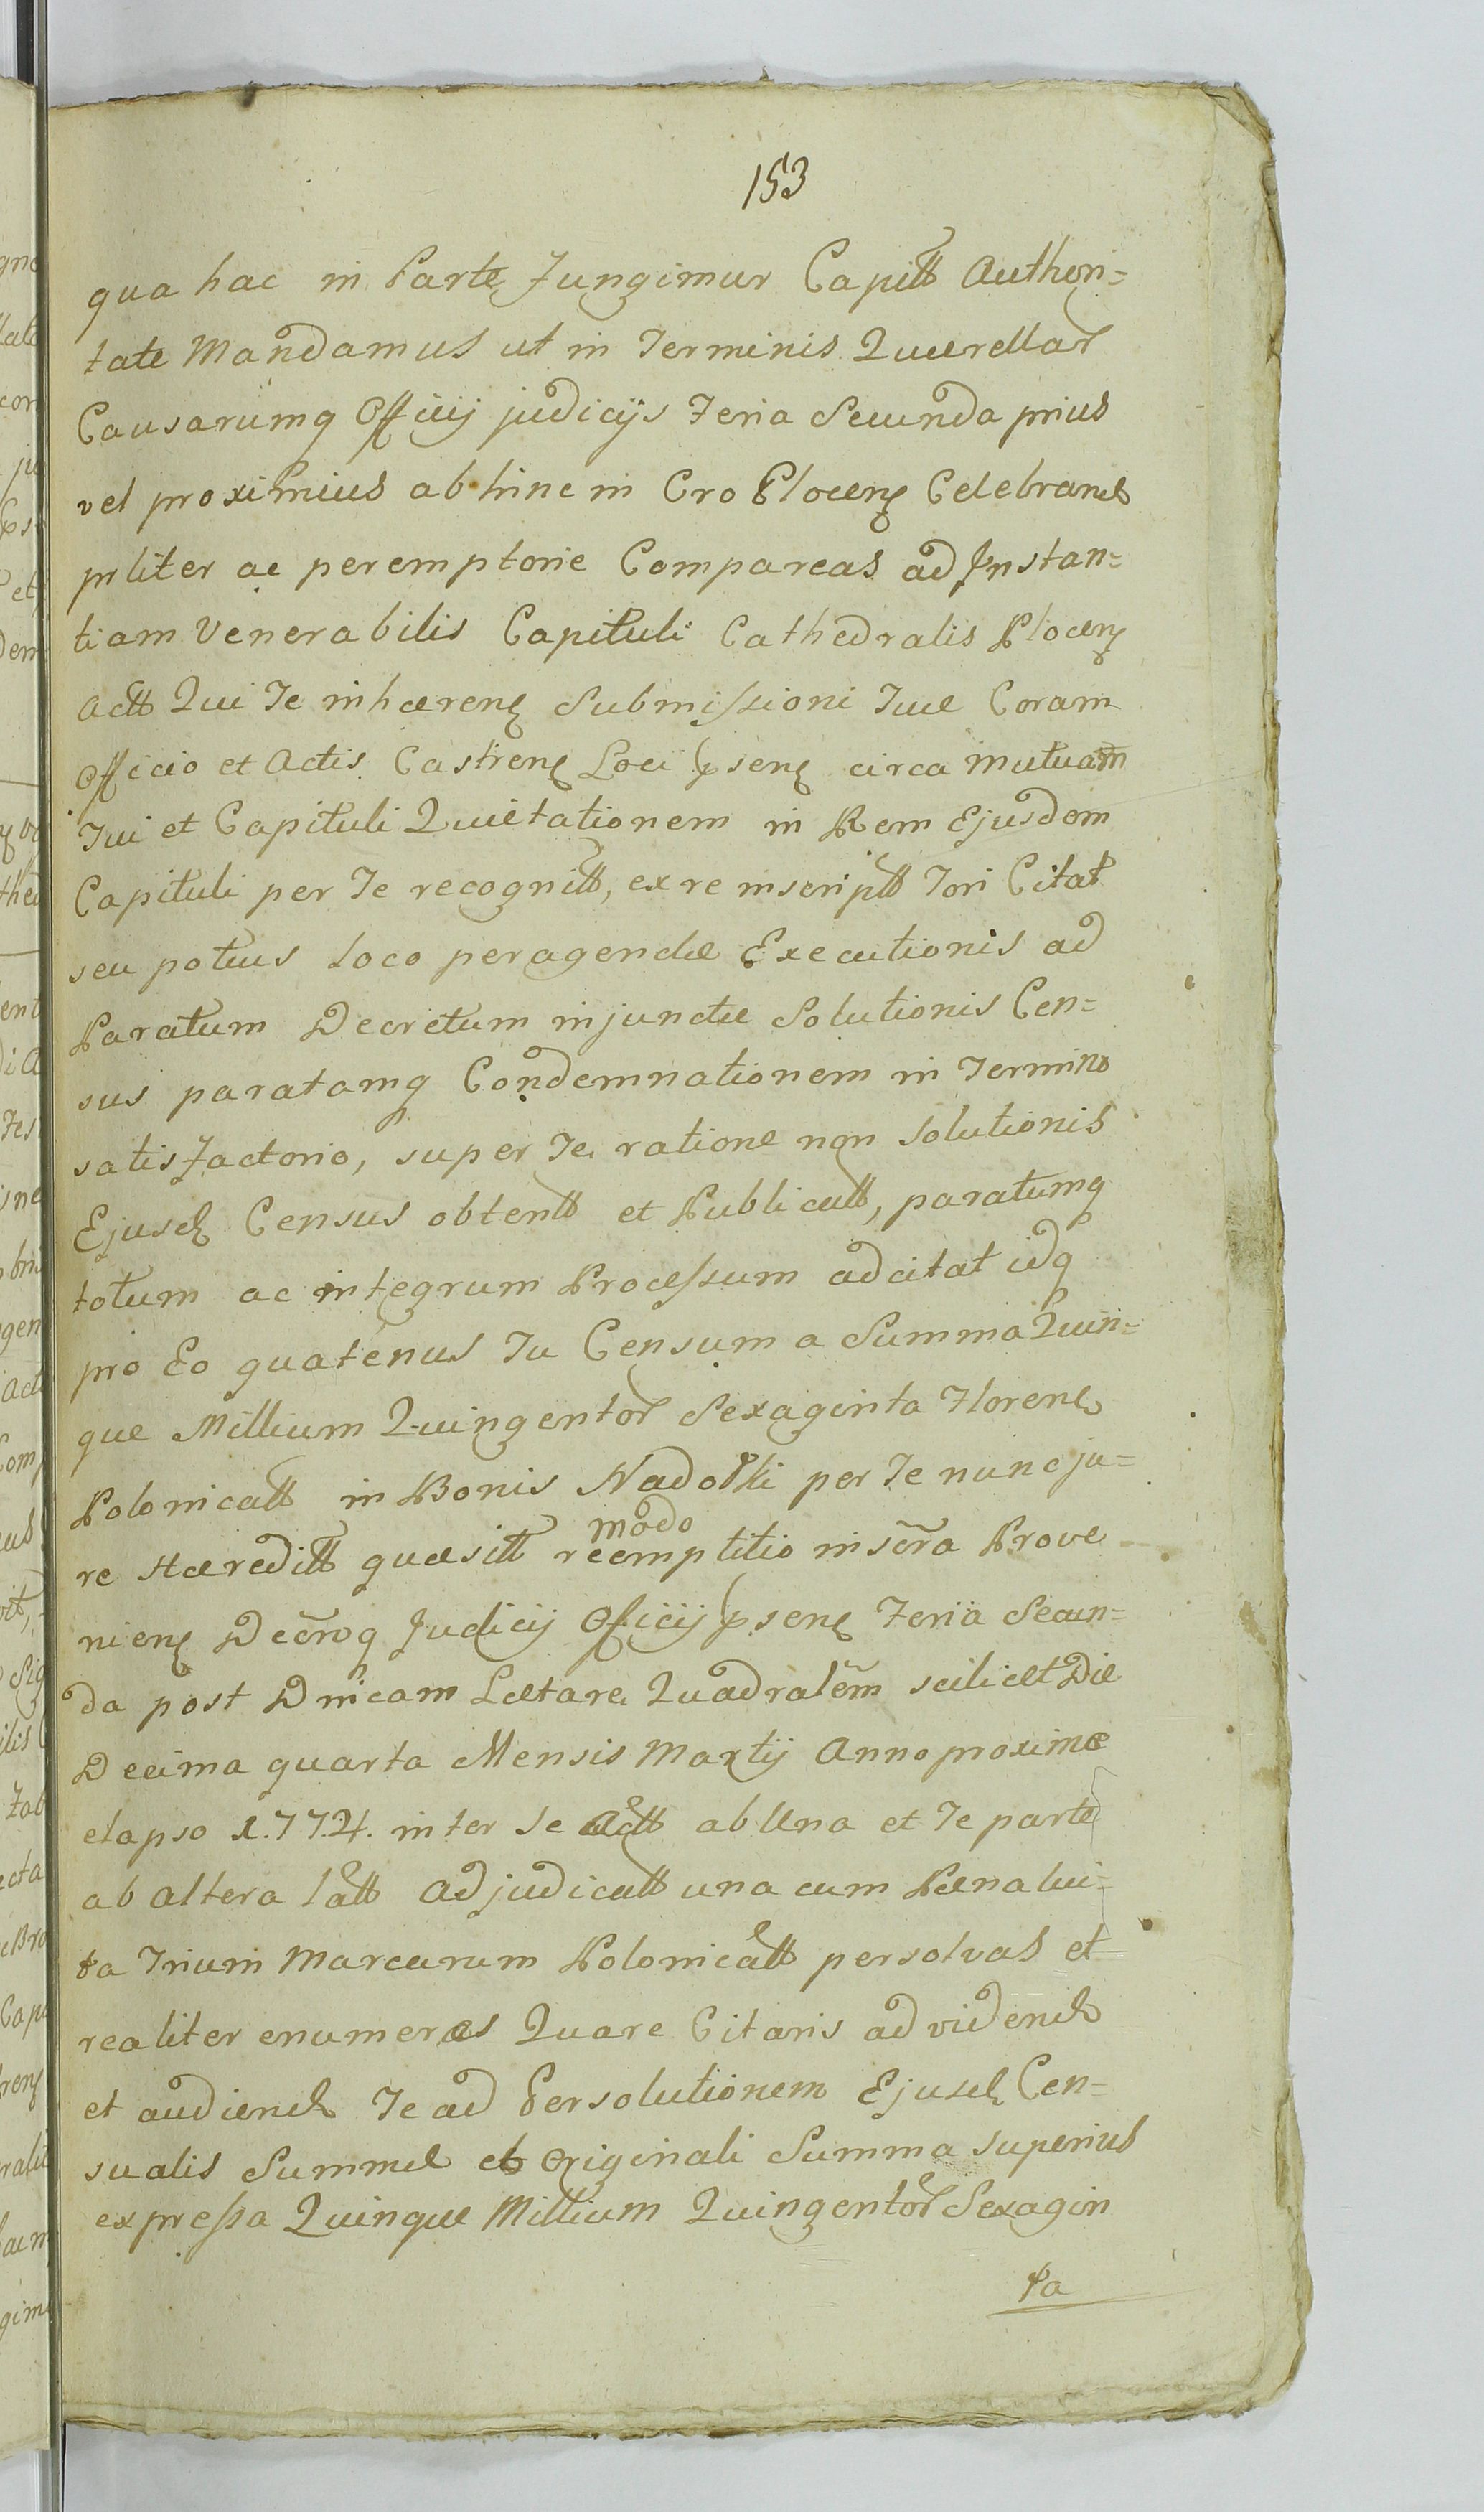 153
qua hac in Parte fungimur Capitt Authori=
tate Mandamus ut in Terminis Querellar
Causarumq Officij judicijs Feria Secunda prius
vel proximius ab hinc in Cro Plocen Celebrand
prliter ac peremptorie Compareas ad Instan=
tiam Venerabilis Capituli Cathedralis Plocen
Actt Qui Te inhæren Submissioni Tuæ Coram
Officio et Actis Castren Loci psen circa mutuam
Tui et Capituli Quietationem in Rem Ejusdem
Capituli per Te recognitt, ex re inscriptt Fori Citat
seu potius loco peragendæ Executionis ad
Paratum Decretum injunctæ Solutionis Cen=
sus paratamq Condemnationem in Termino
satisfactorio, super Te ratione non Solutionis
Ejusd Census obtentt et Publicatt, paratumq
totum ac integrum Processum adcitat idq
pro Eo quatenus Tu Censum a Summa Quin=
que Millium Quingentor Sexaginta Floren
Polonicatt in Bonis Nadolki per Te nunc ju=
re Hæreditt quæsitt modo reemptitio inscra Prove
nien Decroq Judicij Officij psen Feria Secun=
da post Dnicam Lætare Quadralem scilicet Die
Decima quarta Mensis Martij Anno proxime
elapso 1774. inter Te Actt ab Una et Te parte
ab altera latt adjudicatt una cum Pæna lui=
ta Trium Marcarum Polonicatt persolvas et
realiter enumeras Quare Citaris ad vidend
et audiend Te ad Persolutionem Ejusd Cen=
sualis Summæ ab Originali Summa superius
expressa Quinque Millium Quingentor Sexagin
ta